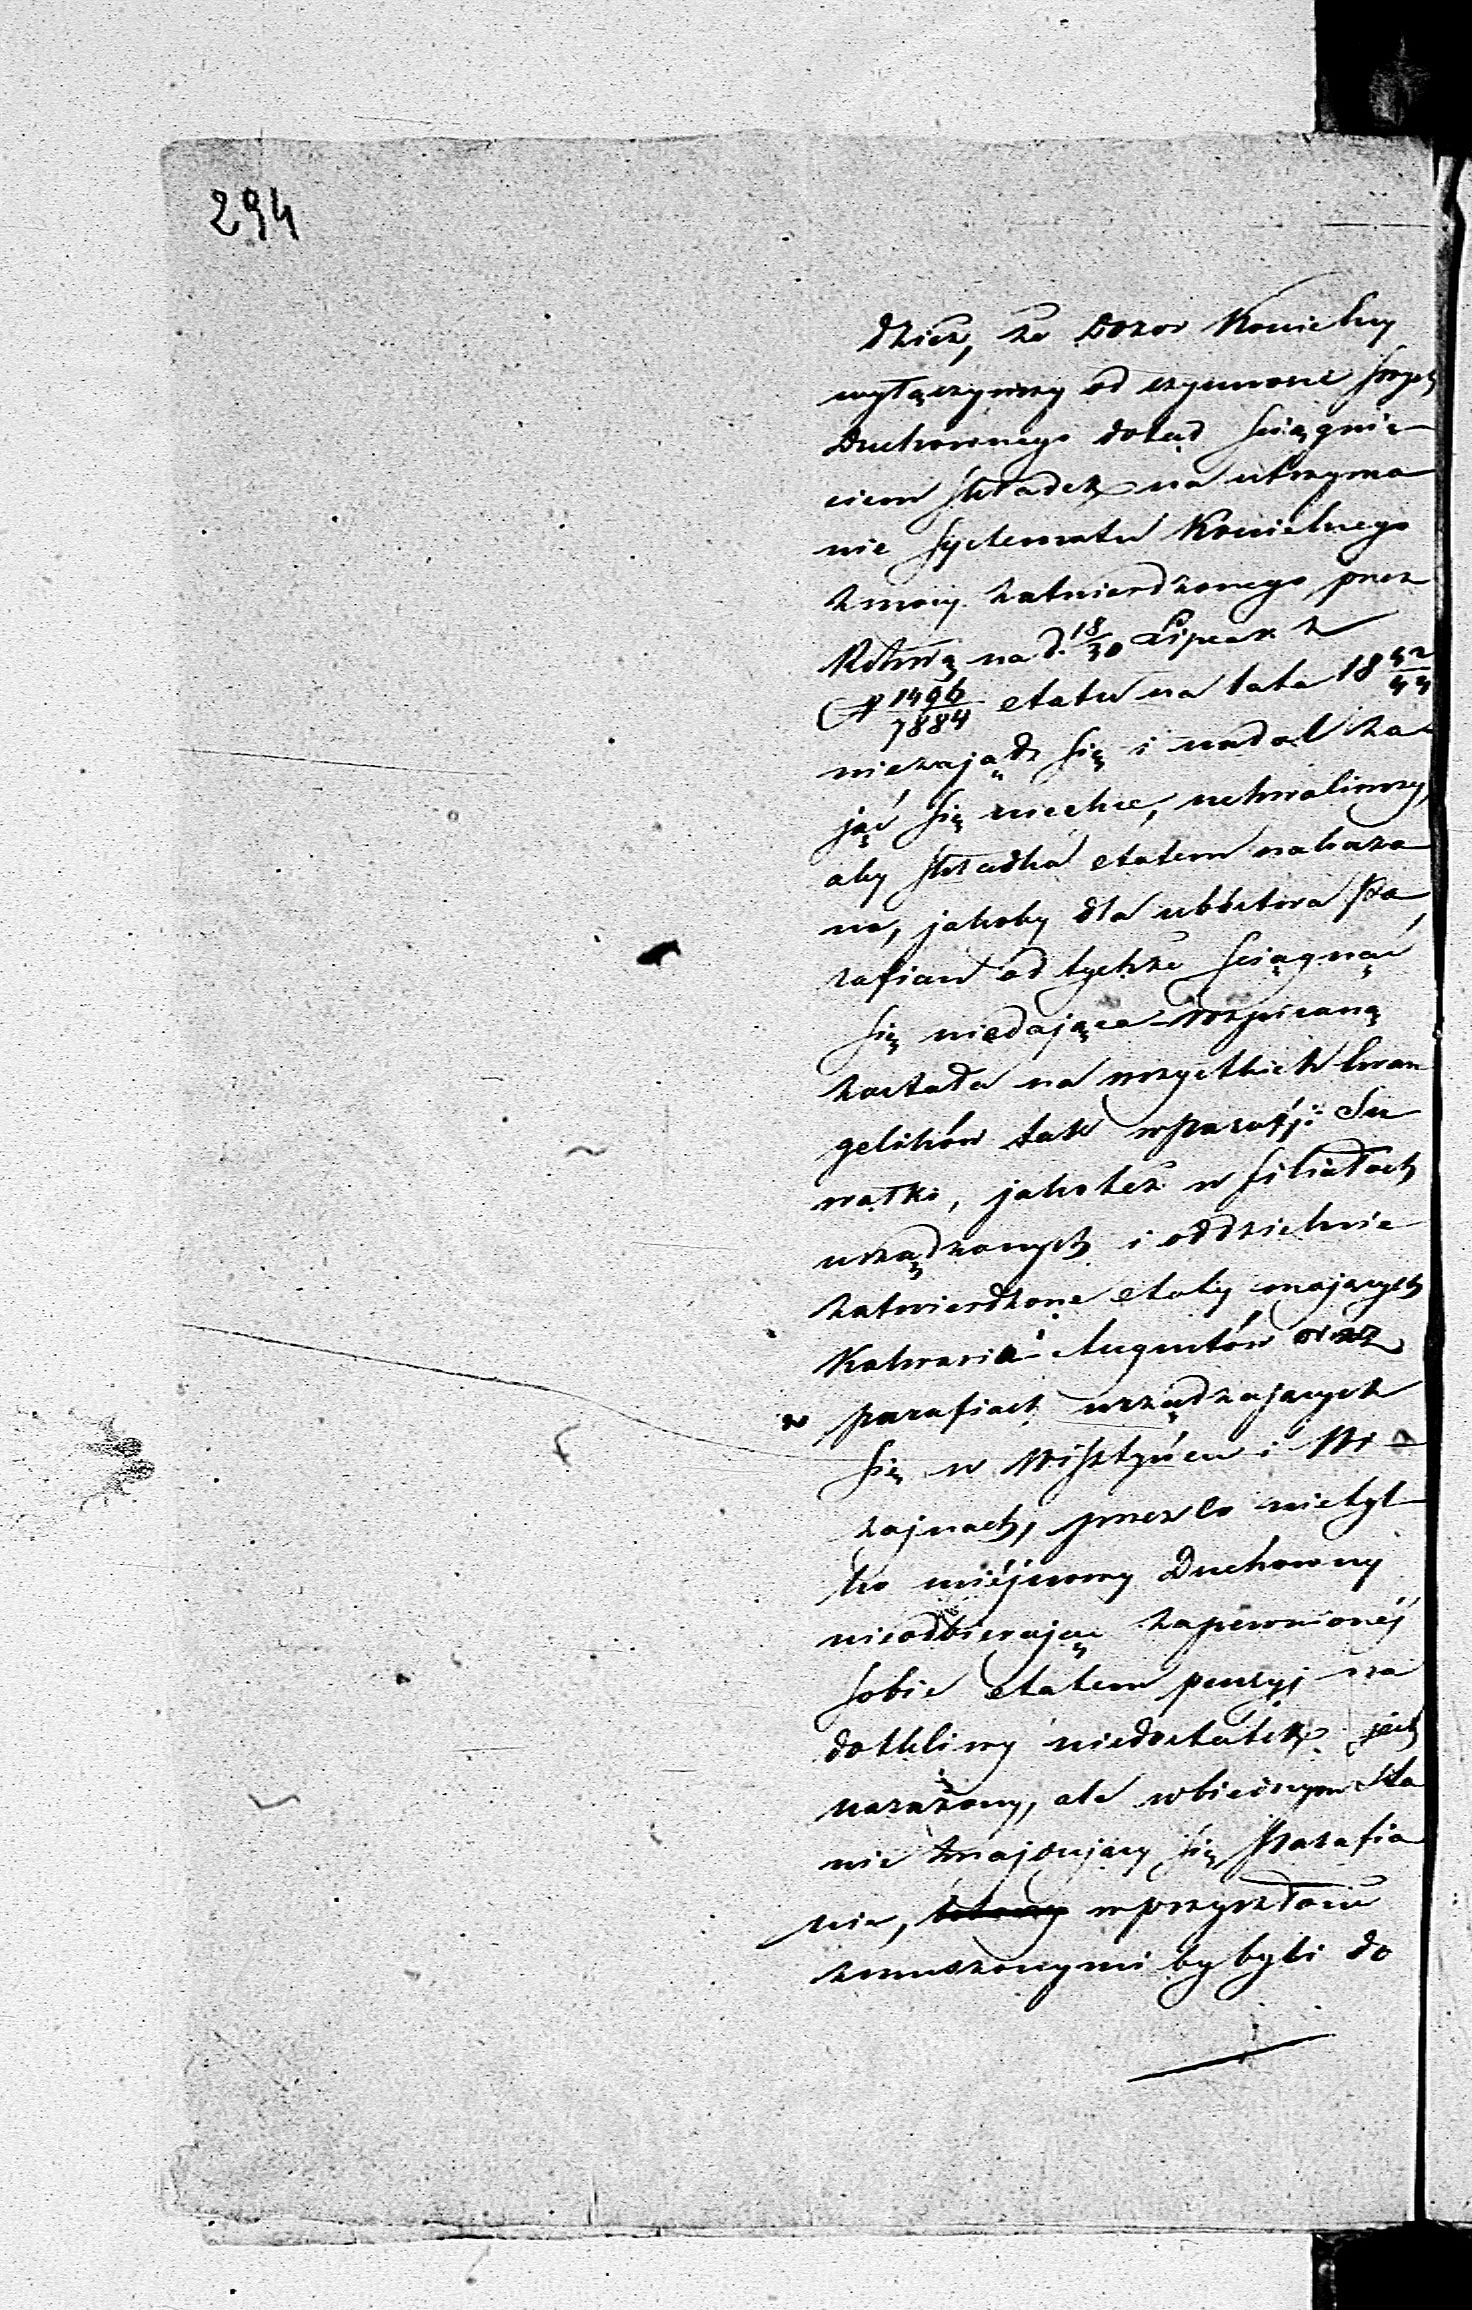 294
dzież, że Dozor Koscielny
wyłączywszy od czynności swych
Duchownego dotąd sciągnie-
ciem składek na utrzyma
nie systematu Koscielnego
z mocy zatwierdzonego przez
na d. 18/30 Lipca r z
N 1496/7884 etatu na lata 18 42/44
niezająwszy się i nadal za
jąć się niechce, uchwaliwszy,
aby składka etatem nakaza
na, jakoby dla ubóstwa Pa
rafian od tychże sciągnąć
się niedająca rozpisaną
została na wszystkich Ewan
gelików tak w parafji Su
wałki, jakoteż w filiałach
urządzonych i oddzielnie
zatwierdzone etaty mających
Kalwaria i Augustów oraz
w parafiach urządzających
się w Wisztyńcu i Wi-
żajnach, przez co nietyl
ko miéjscowy Duchowny
nieodbierając zapewnionéj
sobie etatem pensyj na
dotkliwy niedostatek jest
narażony, ale w biednym sta
nie znajdujący się Parafia
nie, w przyszłości
zmuszonymi by byli do